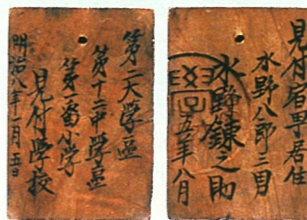 第二大学区
第十二中学区
第一番小学
見付学校
明治八年一月五日
見付宿居住
水野八郎三男
水野錬之助
五年八月